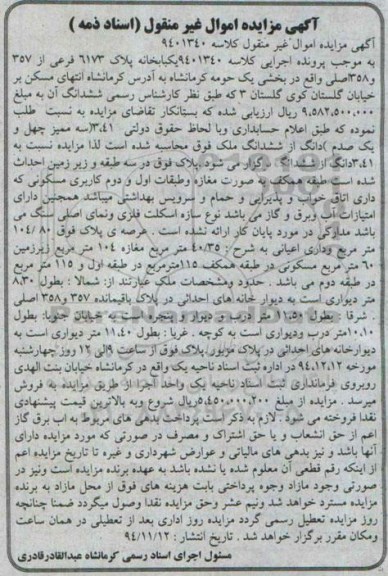 آگهی مزایده اموال غیر منقول (اسناد ذمه )
آگهی مزایده اموال غیر منقول کلاسه ۹۴۰۱۳۴۰
به موجب پرونده اجرایی کلاسه ۹۴۰۱۳۴۰یکبابخانه پلاک ۶۱۷۳ فرعی از ۳۵۷
و۳۵۸اصلی واقع در بخشی یک حومه کرمانشاه به آدرس کرمانشاه انتهای مسکن بر
خیابان گلستان کوی گلستان ۳ که طبق نظر کارشناس رسمی ششدانگ آن به مبلغ
۹،۵۸۲،۵۰۰،۰۰۰ ریال ارزیابی شده که بستانکار تقاضای مزایده به نسبت طلب
نموده که طبق اعلام حسابداری وبا لحاظ حقوق دولتی ۳،۴۱(سه ممیز چهل و
یک صدم )دانگ از ششدانگ ملک فوق محاسبه شده است لذا مزایده نسبت به
۳،۴۱دانگ ازششدانگ برگزار می شود پلاک فوق در سه طبقه و زیر زمین احداث
شده است طبقه همکف به صورت مغازه وطبقات اول و دوم کاربری مسکونی که
دارای اتاق خواب و پذیرایی و حمام و سرویس بهداشتی میباشد همچنین دارای
امتیازات آب وبرق و گاز می باشد نوع سازه اسکلت فلزی ونمای اصلی سنگ می
باشد مدارکی در مورد پایان کار ارائه نشده است . عرصه ی پلاک فوق ۱۰۴/۸۰
متر مربع ودارای اعیانی به شرح : ۴۰/۳۵ متر مربع مغازه ۱۰۴ متر مربع زیرزمین
۶۰ متر مربع مسکونی در طبقه همکف ۱۱۵مترمربع در طبقه اول و ۱۱۵ متر مربع
در طبقه دوم می باشد . حدود ومشخصات ملک عبارتند از: شمالا : بطول ۸،۳۰
متر دیواری است به دیوار خانه های احداثی در پلاک باقیمانده ۳۵۷ و۳۵۸ اصلی
. شرقا : بطول ۱۱،۵۰متر درب و دیواری و پنجره است به خیابان جنوبا: بطول
۱۰،۱۰متر درب ودیواری است به کوچه . غربا : بطول ۱۱،۴۰ متر دیواری است به
دیوارخانه های احداثی در پلاک مزبور. پلاک فوق از ساعت ۹الی ۱۲ روز چهارشنبه
مورخه ۹۴،۱۲،۱۲ در اداره ثبت اسناد ناحیه یک واقع در کرمانشاه خیابان بنت الهدی
روبروی فرمانداری ثبت اسناد ناحیه یک واحد اجرا از طریق مزایده به فروش
میرسد . مزایده از مبلغ ۵،۴۵۰،۰۰۰،۲۰۰ریال شروع وبه بالاترین قیمت پیشنهادی
نقدا فروخته می شود . لازم به ذکر است پرداخت بدهی های مربوط به اب برق گاز
اعم از حق انشعاب و یا حق اشتراک و مصرف در صورتی که مورد مزایده دارای
آنها باشد و نیز بدهی های مالیاتی و عوارض شهرداری و غیره تا تاریخ مزایده اعم
از اینکه رقم قطعی آن معلوم شده یا نشده باشد به عهده برنده مزایده است ونیز در
صورتی وجود مازاد وجوه پرداختی بابت هزینه های فوق از محل مازاد به برنده
مزایده مسترد خواهد شد ونیم عشر وحق مزایده نقدا وصول میگردد ضمنا چنانچه
روز مزایده تعطیل رسمی گردد مزایده روز اداری بعد از تعطیلی در همان ساعت
ومکان مقرر برگزار خواهد شد . تاریخ انتشار : ۹۴/۱۱/۱۲
مسئول اجرای اسناد رسمی کرمانشاه عبدالقادرقادری